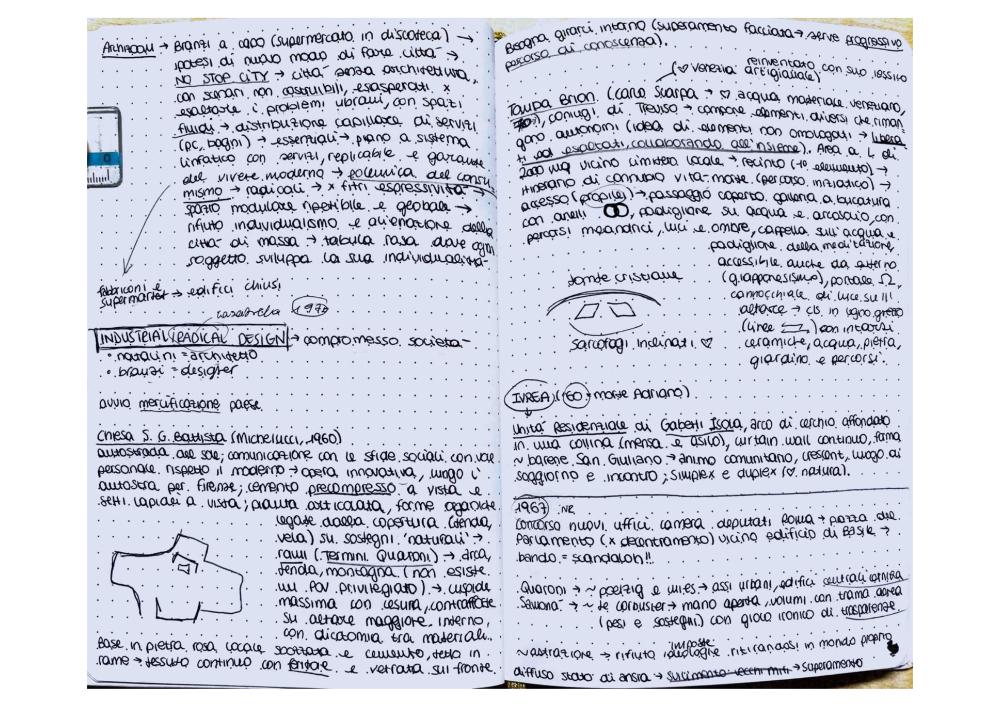 ARCHIZOOM → Branzi a capo (supermercato in discoteca) →
ipotesi di nuovo modo di fare città →
NO STOP CITY → città senza architettura,
con scenari non costruibili, esasperati, x
esaltare i problemi urbani, con spazi
fluidi → distribuzione capillare di servizi
(pc, bagni) → essenziali → piano a sistema
linfatico con servizi, replicabile e garante
del vivere moderno → polemica del consu
mismo → radicali → x filtri espressività →
spazio modulare ripetibile e globale →
rifiuto individualismo e alienazione della
città di massa → tabula rasa dove ogni
soggetto sviluppa la sua individualità
fabbriconi e
supermarket → edifici chiusi
casabella 1970
INDUSTRIAL (RADICAL DESIGN → compromesso società
• natalini = architetto
• branzi = designer
avvio mercificazione paese.
Chiesa S. G. Battista (Michelucci, 1960)
autostrada del sole; comunicazione con le sfide sociali con voce
personale rispetto il moderno → opera innovativa, lungo l'
autostra per firenze; cemento precompresso a vista e
setti lapidei a vista; pianta articolata, forme organiche
legate dalla copertura (tenda,
vela) su sostegni 'naturali' →
rami (Termini Quaroni) → arca,
tenda, montagna (non esiste
un POV privilegiato) → cuspide
massima con cesura, contrafforte
su altare maggiore interno,
con dicotomia tra materiali.
Base in pietra rosa locale spaccata e cemento, tetto in
rame → tessuto continuo con fritage e vetrata sul fronte.
Bisogna girarci intorno (superamento facciata → serve progressivo
percorso di conoscenza).
(♡ venezia reinventato con suo lessico
artigianale)
Tomba Brion (Carlo Scarpa → ♡ acqua, materiale veneziano,
70), coniugi di Treviso → compone elementi diversi che riman-
gono autonomi (idea di elementi non omologati → libera
ti ed esaltati, collaborando all'insieme). Area a L di
2000 mq vicino cimitero locale → recinto (1° elemento) →
itinerario di connubio vita-morte (percorso iniziatico) →
accesso (propilei) → passaggio coperto galleria a bucatura
con anelli, padiglione su acqua e arcosolio, con
percorsi meandrici, luci e ombre, cappella sull'acqua e
padiglione della meditazione
accessibile anche da esterno
(giapponesismo), portale Ω,
cannocchiale di luce sull'
altare → cls in legno grezzo
(linee) con intarsi
ceramiche, acqua, pietra,
giardino e percorsi.
tombe cristiane
sarcofagi inclinati ♡
IVREA (60 → morte Adriano)
Unità Residenziale di Gabetti Isola, arco di cerchio affondato
in una collina (mensa e asilo), curtain wall continuo, fama
~ barene San Giuliano → animo comunitario, crescent, luogo di
soggiorno e incontro; simplex e duplex (♡ natura).
1967 NR
Concorso nuovi uffici camera deputati Roma → piazza del
Parlamento (x decentramento) vicino edificio di Basile →
bando = scandalon!!
. Quaroni → ~ poelzig e mies → assi urbani, edifici centrali cornice
. Samonà → ~ le corbusier → mano aperta, volumi con trama aerea
(pesi e sostegni) con gioco ironico di trasparenze
~ astrazione → rifiuto ideologie imposte riticandosi in mondo proprio
diffuso stato di ansia → sucimento vecchi miti → superamento